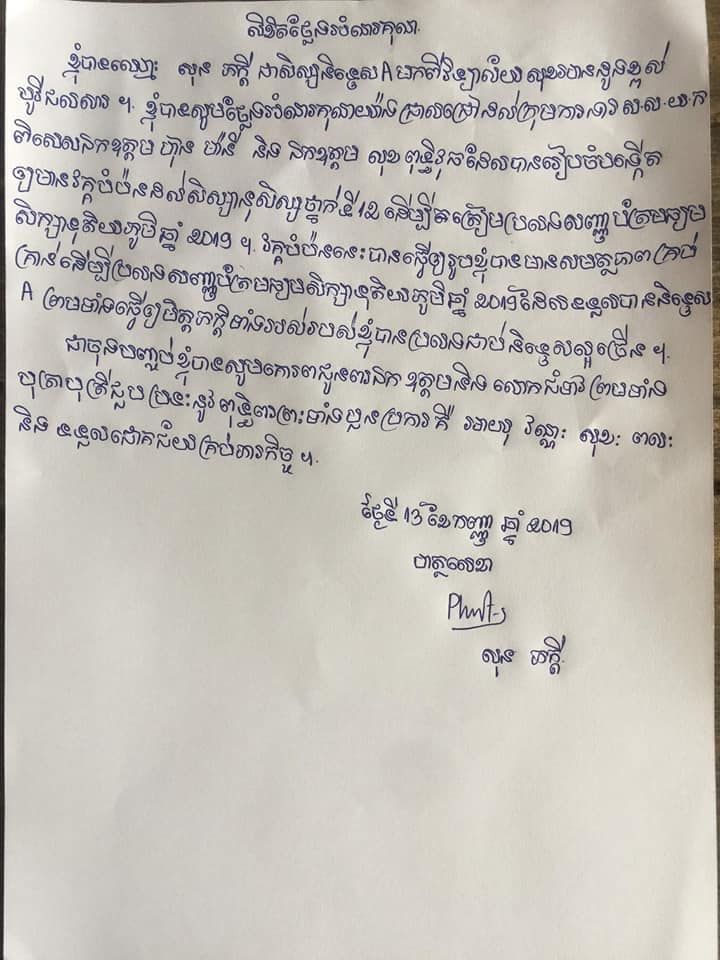 លិខិតថ្លែងអំណរគុណ
ខ្ញុំបានឈ្មោះ សុន ភក្ដី ជាសិស្សនិទ្ទេស A មកពីវិទ្យាល័យ សុខអានដូងខ្ពស់
បូរីជលសារ ។ ខ្ញុំបានសូមថ្លែងអំណរគុណយ៉ាងជ្រាលជ្រៅដល់ក្រុមការងារ ស.ស.យ.ក
ពិសេសឯកឧត្តម ហ៊ុន ម៉ានី និង ឯកឧត្តម សុខ ពុទ្ធិវុធ ដែលបានរៀបចំបង្កើត
ឲ្យមានវគ្គបំប៉នដល់សិស្សានុសិស្សថ្នាក់ទី 12 ដើម្បីត្រៀមប្រលងសញ្ញាបត្រមធ្យម
សិក្សាទុតិយភូមិឆ្នាំ 2019 ។ វគ្គបំប៉ននេះបានធ្វើឲ្យរូបខ្ញុំបានមានសមត្ថភាពគ្រប់
គ្រាន់ដើម្បីប្រលងសញ្ញាបត្រមធ្យមសិក្សាទុតិយភូមិឆ្នាំ 2019 ដែលទទួលបាននិទ្ទេស
A ព្រមទាំងធ្វើឲ្យមិត្តភក្ដិទាំងអស់របស់ខ្ញុំបានប្រលងជាប់និទ្ទេសល្អច្រើន ។
ជាចុងបញ្ចប់ខ្ញុំបានសូមគោរពជូនពរឯកឧត្តមនិង លោកជំទាវ ព្រមទាំង
បុត្រាបុត្រីជួបប្រទះនូវ ពុទ្ធពរព្រះទាំងបួនប្រការគឺ អាយុ វណ្ណៈ សុខៈ ពលៈ
និង ទទួលជោគជ័យគ្រប់ភារកិច្ច ។
ថ្ងៃទី 13 ខែកញ្ញា ឆ្នាំ 2019
ហត្ថលេខា
សុន ភក្ដី